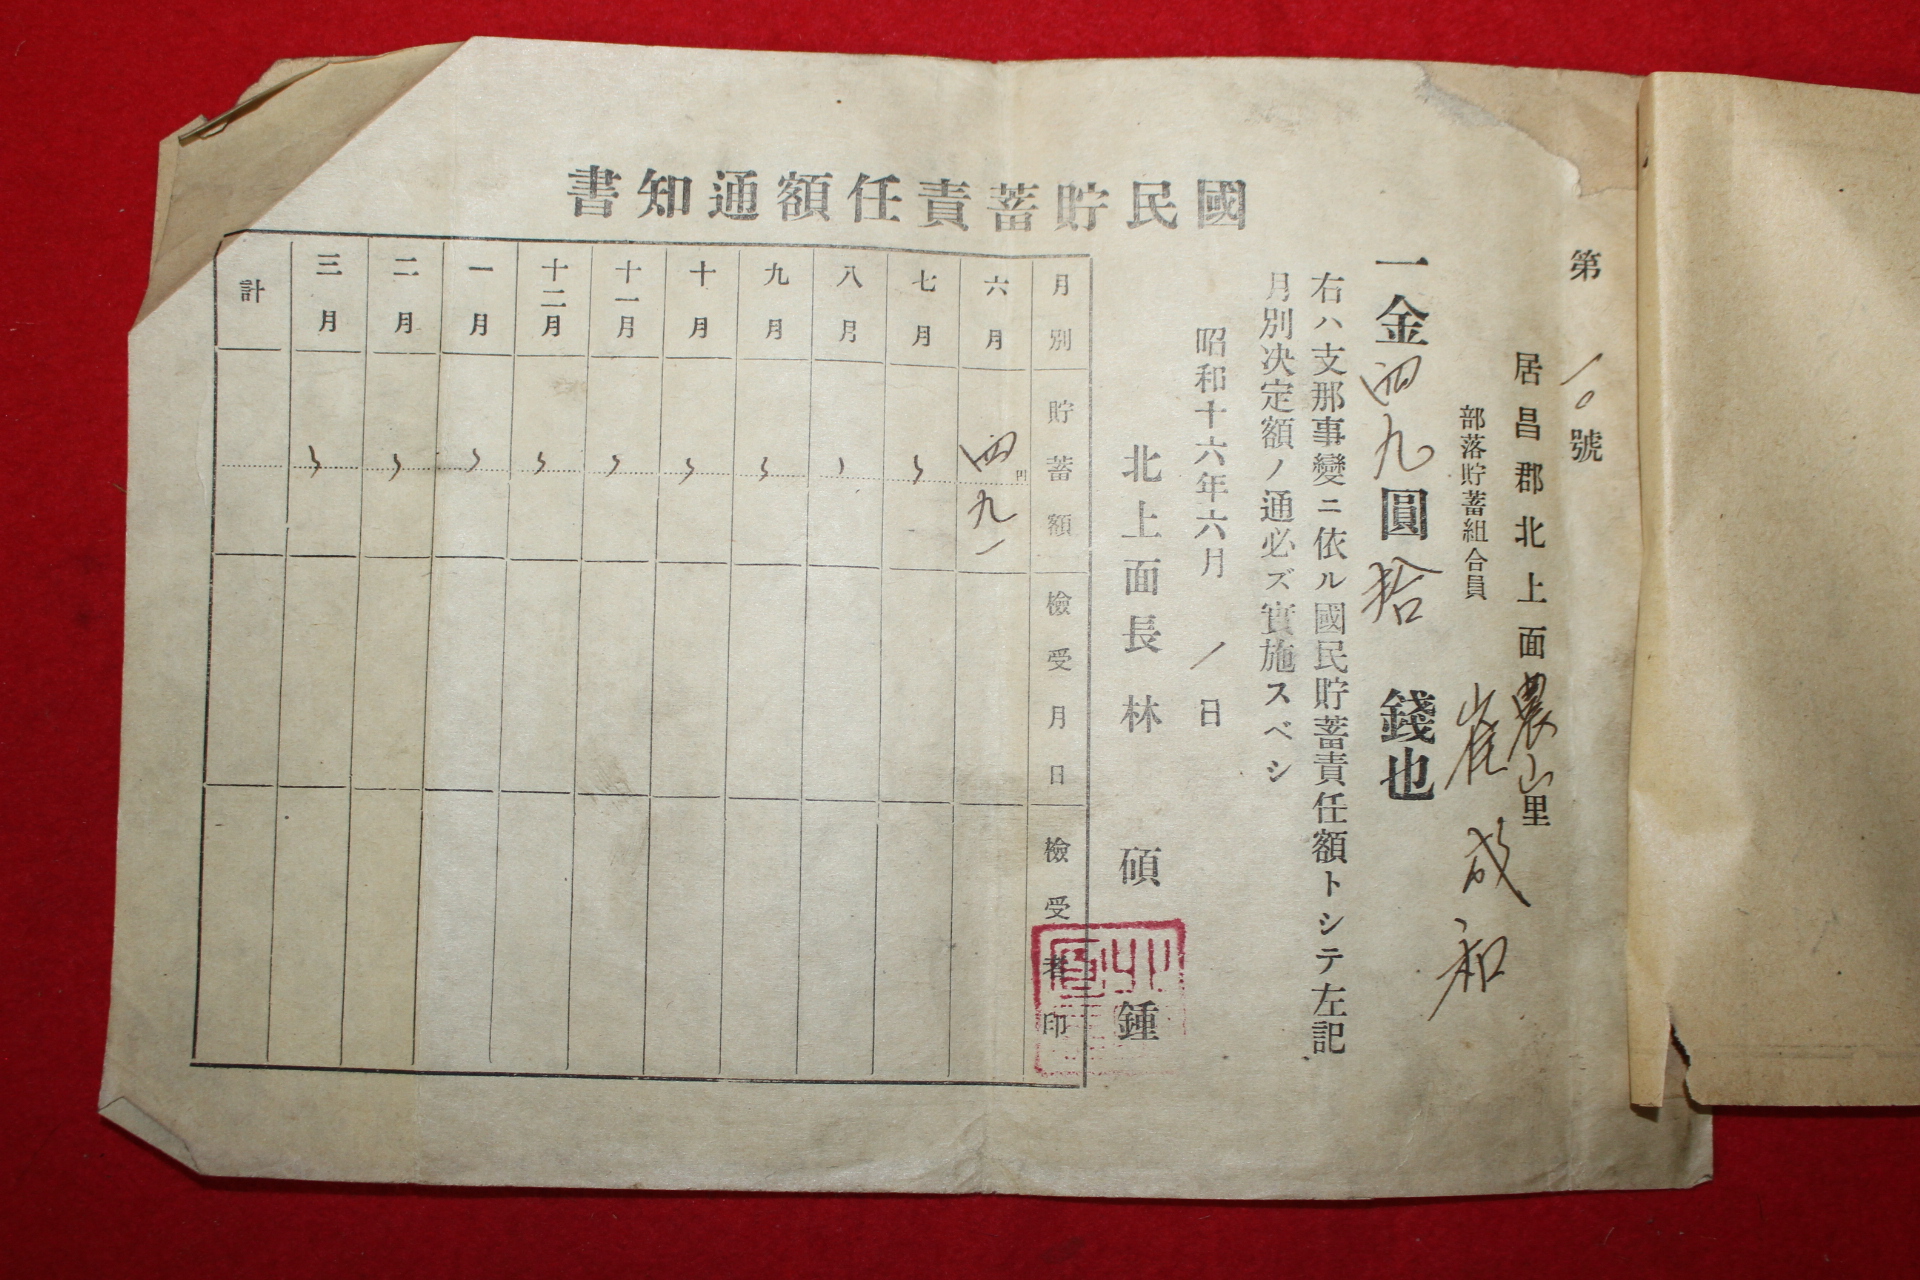 國民貯蓄責任額通知書
第一〇號
居昌郡北上面農山里
部落貯蓄組合員 崔成和
一金四九圓拾錢也
右ハ支那事變ニ依ル國民貯蓄責任額トシテ左記
月別決定額ノ通必ズ實施スベシ
昭和十六年六月一日
北上面長 林碩鍾
月別 貯蓄額 檢受月日 檢受者印
六月 四円九一
七月 〃
八月 〃
九月 〃
十月 〃
十一月 〃
十二月 〃
一月 〃
二月 〃
三月 〃
計